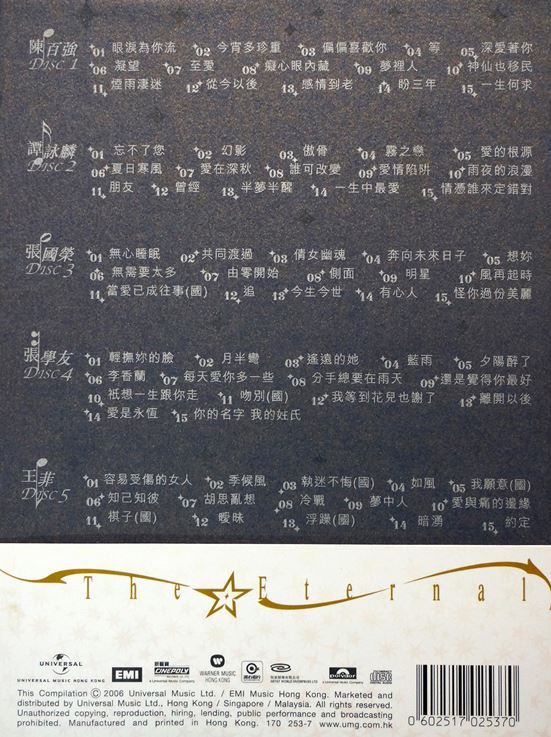 陳百強
Disc 1
01 眼淚為你流 02 今宵多珍重 03 偏偏喜歡你 04 等 05 深愛著你
06 凝望 07 至愛 08 癡心眼內藏 09 夢裡人 10 神仙也移民
11 煙雨淒迷 12 從今以後 13 感情到老 14 盼三年 15 一生何求
譚詠麟
Disc 2
01 忘不了您 02 幻影 03 傲骨 04 霧之戀 05 愛的根源
06 夏日寒風 07 愛在深秋 08 誰可改變 09 愛情陷阱 10 雨夜的浪漫
11 朋友 12 曾經 13 半夢半醒 14 一生中最愛 15 情憑誰來定錯對
張國榮
Disc 3
01 無心睡眠 02 共同渡過 03 倩女幽魂 04 奔向未來日子 05 想妳
06 無需要太多 07 由零開始 08 側面 09 明星 10 風再起時
11 當愛已成往事(國) 12 追 13 今生今世 14 有心人 15 怪你過份美麗
張學友
Disc 4
01 輕撫妳的臉 02 月半彎 03 遙遠的她 04 藍雨 05 夕陽醉了
06 李香蘭 07 每天愛你多一些 08 分手總要在雨天 09 還是覺得你最好
10 祇想一生跟你走 11 吻別(國) 12 我等到花兒也謝了 13 離開以後
14 愛是永恆 15 你的名字 我的姓氏
王菲
Disc 5
01 容易受傷的女人 02 季候風 03 執迷不悔(國) 04 如風 05 我願意(國)
06 知己知彼 07 胡思亂想 08 冷戰 09 夢中人 10 愛與痛的邊緣
11 棋子(國) 12 曖昧 13 浮躁(國) 14 暗湧 15 約定
The Eternal
UNIVERSAL
UNIVERSAL MUSIC HONG KONG
EMI
新藝寶
CINEPOLY
a Universal Music Company
WARNER MUSIC
HONG KONG
ARTIST WORLD ENTERPRISE LTD
polydor
a Universal Music Company
This Compilation Ⓒ 2006 Universal Music Ltd. / EMI Music Hong Kong. Marketed and
distributed by Universal Music Ltd., Hong Kong / Singapore / Malaysia. All rights reserved.
Unauthorized copying, reproduction, hiring, lending, public performance and broadcasting
prohibited. Manufactured and printed in Hong Kong. 170 253-7 www.umg.com.hk
0 602517 025370